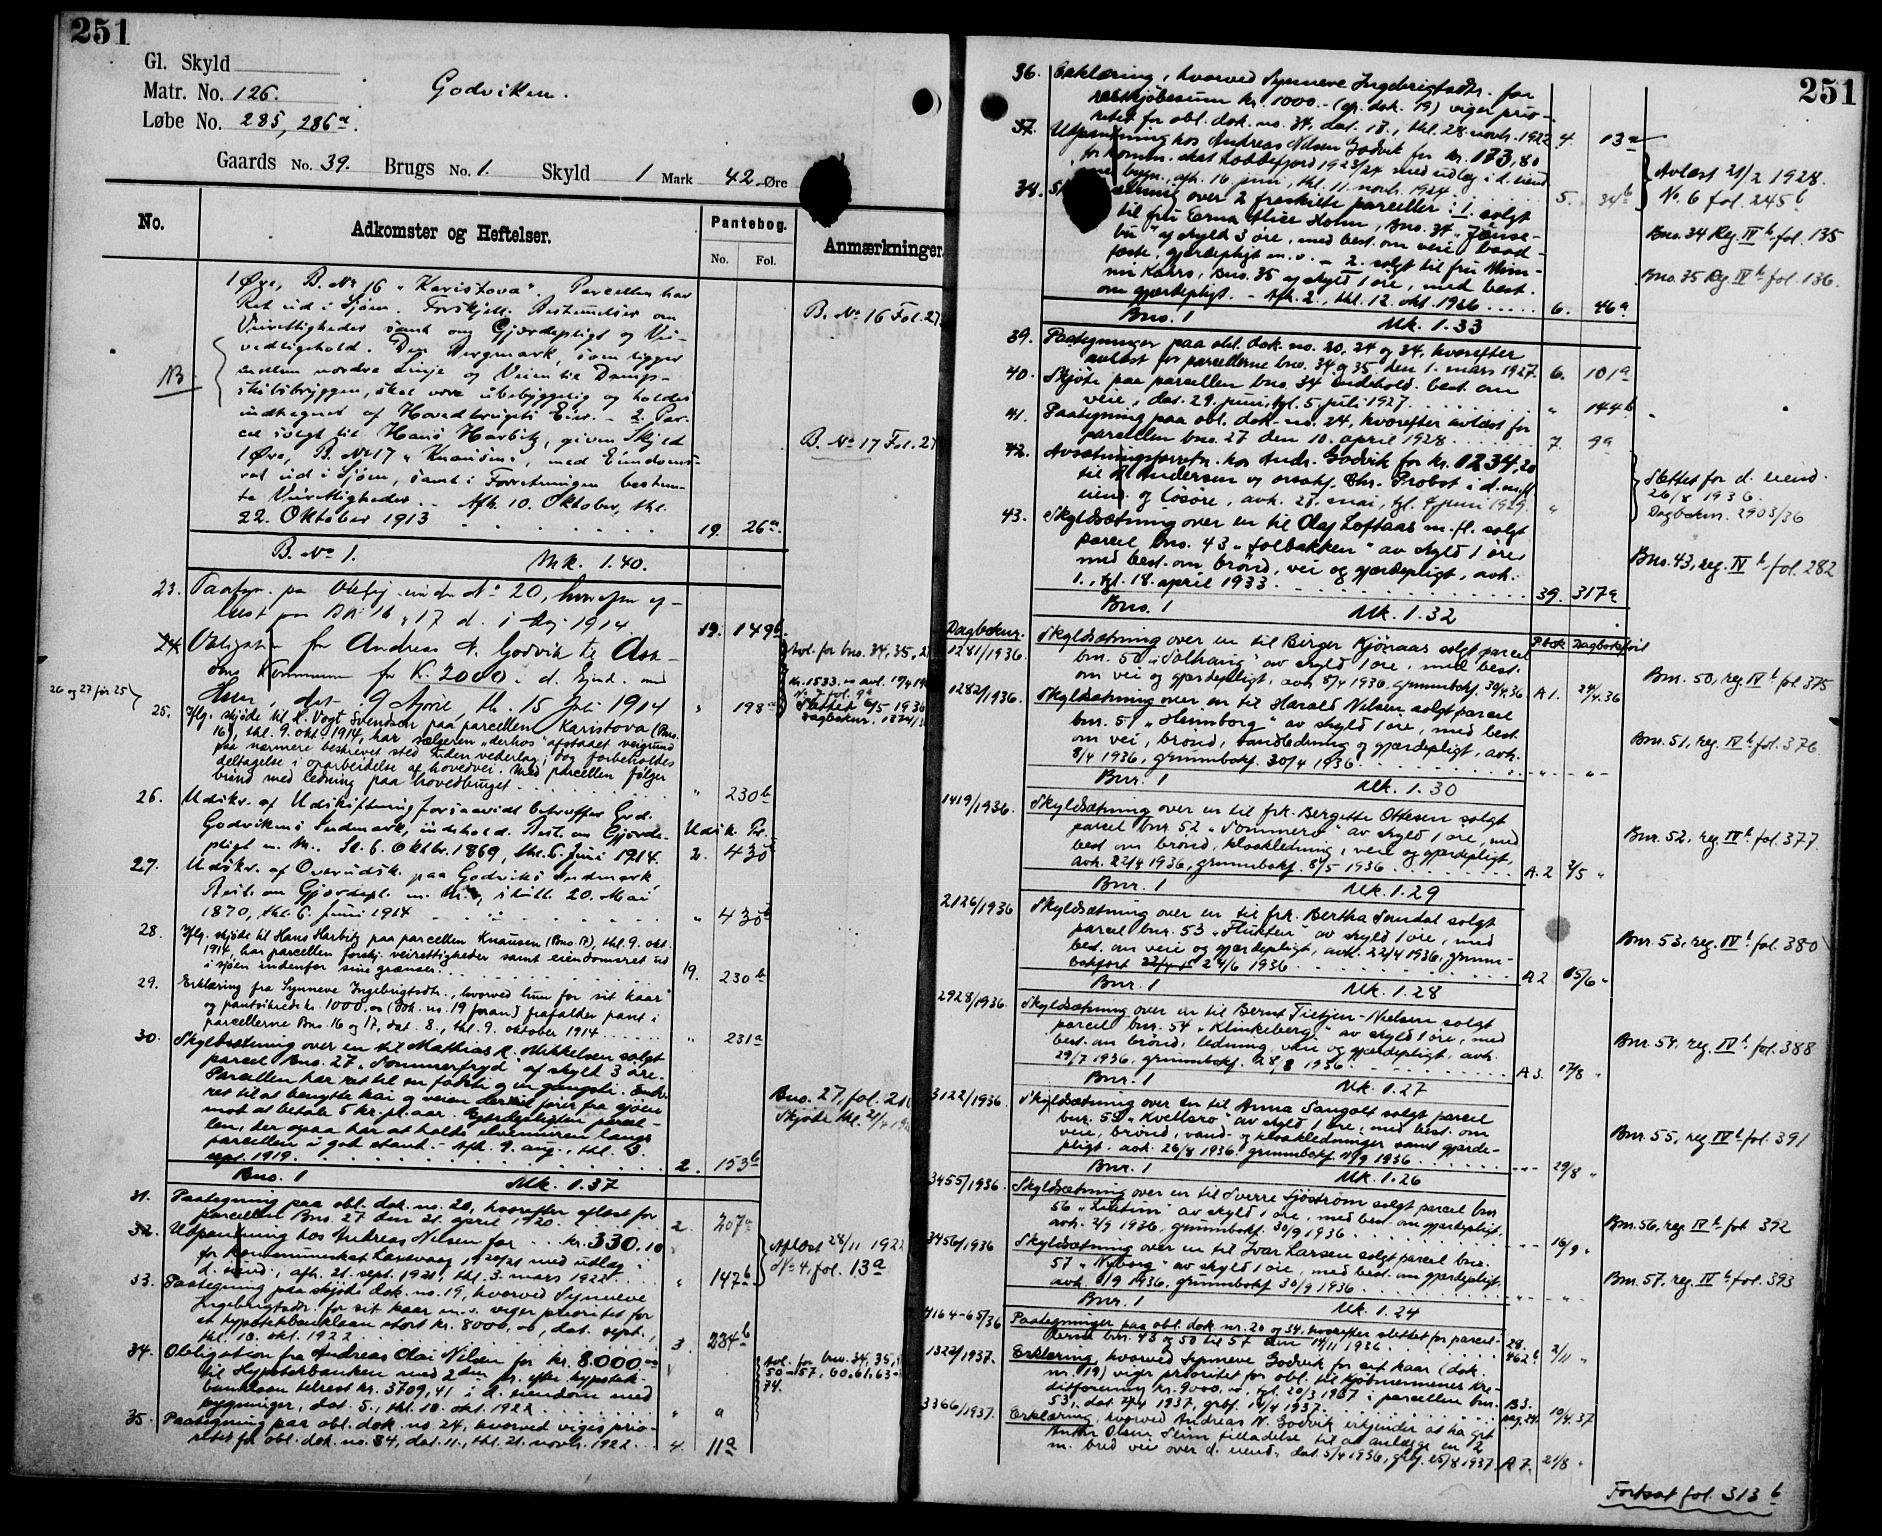 251
Gl. Skyld
Matr. No. 126.
Godviken.
Løbe No. 285, 286a.
Gaards No. 39. Brugs No. 1. Skyld 1 Mark 42 Øre
No. Adkomster og Heftelser. Pantebog. Anmærkninger.
No. Fol.
1 Øre, B. No 16 "Karistova". Parcellen har
Ret ud i Sjøen. Forskjell. Bestemmelser om
B. No 16 Fol. 27
Veirettigheder samt om Gjerdepligt og Vei-
vedligehold. Den Bergmark, som ligger
NB
mellem nordre Linje og Veien til Damp-
skibsbryggen, skal være ubebyggelig og holdes
indhegnet af Hovedbrugets Eier. - 2. Par-
cel solgt til Hans Harbitz, given Skyld
B. No 17 Fol. 27
1 Øre, B. No 17 "Knausen", med Eiendoms-
ret ud i Sjøen, samt i Forretningen bestem-
te Veirettigheder. - Afh. 10. Oktober, thl.
22. Oktober 1913 19. 26a.
B. No 1. Mk. 1.40.
23. Paategn. på Oblig. under No 20, hvorefter af-
læst for BNo 16 & 17 d. 1 Maj 1914 19. 149b.
24. Obligation fra Andreas N. Godvik til Ask-
øens Kommune for K. 2000 i d. Eiend. med
Huse, dat. 9 April, thl. 15 Juli 1914 " 198a
Avl. for bno. 34, 35, 27
Kr. 1533.00 avl. 17/4 19
No 7 fol. 9a
Slettet 6/5 1936
Dagboknr. 1324/36
26 og 27 før 25
25. Iflg. skjøde til R. Vogt Svendsen paa parcellen Karistova (Bno.
16), thl. 9. okt. 1914, har sælgeren "derhos" afstaaet veigrund
paa nærmere beskrevet sted uden vederlag; dog forbeholdes
deltagelse i oparbeidelse af hovedvei. Med parcellen følger
brønd med ledning paa hovedbruget " 230b
26. Udskr. af Udskiftning forsaavidt betræffer Grd.
Godvikens Indmark, indehold. Best. om Gjerde-
pligt m. m. Sl. 6. Oktbr. 1869, thl. 6. Juni 1914. Udsk. Pr. 2. 430b
27. Udskr. af Overudsk. paa Godviks Indmark,
Best. om Gjerdepl. m. m., sluttt. 20. Mai
1870, thl. 6. Juni 1914 " 430b
28. Iflg. skjøde til Hans Harbitz paa parcellen Knausen (Bno. 17), thl. 9. okt.
1914, har parcellen forskj. veirettigheder samt eiendomsret ud
i sjøen indenfor sine grænser. 19. 230b
29. Erklæring fra Synneve Ingebrigtsdtr., hvorved hun for sit kaar
og pantsikrede kr. 1000.00 (dok. no. 19 foran) frafalder pant i
parcellerne Bno. 16 og 17, dat. 8., thl. 9. oktober 1914 " 231a
30. Skyldsætning over en til Mathias R. Mikkelsen solgt
parcel Bno. 27 "Sommerfryd" af skyld 3 øre.
Parcellen har ret til en fødsti og en gangsti. Endv.
ret til at benytte kai og veien dertil fører fra sjøen
mod at betale 5 kr. pr. aar. Gjerdepligten parcel-
len, der ogsaa har at holde elvemuren langs
parcellen i god stand. - Afh. 9. aug., thl. 3.
sept. 1919. 2. 153b
Bno. 27, fol. 21
Skjøde thl. 21/4 19
Bno. 1 Mk. 1.37
31. Paategning paa obl. dok. no. 20, hvorefter aflæst for
parcellen Bno. 27 den 21. april 1920. 2. 207a
32. Utpantning hos Andreas Nilsen for kr. 330.10
for kommuneskat Laksevaag 1920/21 med utlæg i
d. eiend., afh. 21. sept. 1921, thl. 3. mars 1922. " 147b
Aflæst 28/11 1922
No 4, fol. 13a
33. Paategning paa skjøte dok. no. 19, hvorved Synneve
Ingebrigtsdtr. for sit kaar m. v. viger prioritet for
et hypotekbanklaan stort kr. 8000,00, dat. sept.,
thl. 10. okt. 1922 3. 234b
34. Obligation fra Andreas Olai Nilsen for kr. 8000.00
til Hypotekbanken med 2den pr. efter hypotek-
banklaan tilrest kr. 3709,41 i d. eiendom med
bygninger, dat. 5., thl. 10. okt. 1922 " a
Avl. for bno. 34, 35,
50-57, 60, 61, 63-
74.
35. Paategning paa obl. dok. no 24, hvorved viges prio-
ritet for obl. dok. no. 34, dat. 11., thl. 21. novb. 1922. 4. 11a
251
36. Erklæring, hvorved Synneve Ingebrigtsdtr. for
restkjøbesum kr. 1000.- (gr. dok. 19) viger prio-
ritet for obl. dok. no. 34, dat. 18., thl. 28. novb. 1922 4. 13a
37. Utpantning hos Andreas Nilsen Godvik for kr. 173,80
for komm. skat Lobbefjord 1923/24 med utlæg i d. eiend.
bygn., afh. 16 juni, thl. 11. novb. 1924. 5. 34b
Avlæst 21/2 1928.
No. 6 fol. 245b
38. Skyldsætning over 2 fraskilte parceller: 1. solgt
til fru Erna Alice Holm, Bno. 34 "Jønse-
bu" af skyld 3 øre, med best. om vei, baad-
fæste, gjerdepligt m. v. - 2. solgt til fru Mim-
mi Karrs, Bno. 35 af skyld 1 øre, med best.
om gjerdepligt. - Afh. 2., thl. 12. okt. 1926 6. 46a
Bno. 34 Reg. IVb fol. 135
Bno. 35 Reg. IVb fol. 136.
Bno. 1 Mk. 1.33
39. Paategninger paa obl. dok. no. 20, 24 og 34, hvorefter
avlæst for parcellerne bno. 34 og 35 den 1. mars 1927. 6. 101a
40. Skjøte paa parcellen bno. 34 indehold. best. om
veie, dat. 29. juni, tgl. 5. juli 1927. " 144b
41. Paategning paa obl. dok. no. 24, hvorefter avlæst for
parcellen bno. 27 den 10. april 1928. 7. 9a
42. Avsætningsforretn. hos Andr. Godvik for kr. 1234,20
til Andersen og orsakf. Chr. Probst i d. m. fl.
eiend. og løsøre, avh. 27. mai, tgl. 4 juni 1929. "
Slettet for d. eiend.
26/8 1936.
Dagboknr. 2903/36
43. Skyldsætning over en til Olaf Loftaas m. fl. solgt
parcel bno. 43 "Solbakken" av skyld 1 øre
med best. om brønd, vei og gjerdepligt, avh.
1., tgl. 18. april 1933 39. 317a
Bno. 43, reg. IVb fol. 282
Bno. 1 Mk. 1.32
Dagboknr. P.bok Dagbokført
1281/1936. Skyldsætning over en til Birger Kjönaas solgt parcel
bnr. 50 "Solhaug" av skyld 1 øre, med best.
om vei og gjerdepligt, avh. 8/4 1936, grunnbokf. 30/4 36 A 1. 24/4.36
Bnr. 50, reg. IVb fol. 375
1282/1936. Skyldsætning over en til Harald Nilsen solgt parcel
bnr. 51 "Heimborg" av skyld 1 øre, med best.
om vei, brønd, vandledning og gjerdepligt, avh.
8/4 1936, grunnbokf. 30/4 1936. " "
Bnr. 51, reg. IVb fol. 376
Bnr. 1 Mk. 1.30
1419/1936. Skyldsætning over en til frk. Bergitte Ottesen solgt
parcel bnr. 52 "Sommero" av skyld 1 øre, med
best. om brønd, kloakledning, veie og gjerdepligt,
avh. 22/4 1936, grunnbokf. 8/5 1936 A. 2 2/5 "
Bnr. 52, reg. IVb fol. 377.
Bnr. 1 Mk. 1.29
2126/1936 Skyldsætning over en til frk. Bertha Sundal solgt
parcel bnr. 53 "Flukten" av skyld 1 øre, med
best. om veie og gjerdepligt, avh. 22/4 1936, grunn-
bokført 24/6 1936. A 2 15/6 "
Bnr. 53, reg. IVb fol. 380
Bnr. 1 Mk. 1.28
2928/1936. Skyldsætning over en til Bernt Tietjen-Nielsen solgt
parcel bnr. 54 "Klinkeberg" av skyld 1 øre, med
best. om brønd, ledning, veie og gjerdepligt, avh.
29/7 1936, grunnbokf. 28/8 1936. A 3. 17/8 "
Bnr. 54, reg. IVb fol. 388
Bnr. 1 Mk. 1.27
3122/1936. Skyldsætning over en til Anna Sangolt solgt parcel
bnr. 55 "Kvellaro" av skyld 1 øre, med best. om
veie, brønd, vand- og kloakledninger samt gjerde-
pligt, avh. 26/8 1936, grunnbokf. 11/9 1936. 29/8 "
Bnr. 55, reg. IVb fol. 391
Bnr. 1 Mk. 1.26
3455/1936. Skyldsætning over en til Sverre Sjöström solgt parcel bnr.
56 av skyld 1 øre, med best. om gjerdepligt,
avh. 2/9 1936, grunnbokf. 30/9 1936. 16/9 "
Bnr. 56, reg. IVb fol. 392
3456/1936 Skyldsætning over en til Ivar Larsen solgt parcel bnr.
57 "Nyborg" av skyld 1 øre, med best. om gjerdepligt,
avh. 1/9 1936, grunnbokf. 30/9 1936. " "
Bnr. 57, reg. IVb fol. 393
Bnr. 1 Mk. 1.24
4164-65/36 Paategninger paa obl. dok. nr. 20 og 34, hvorefter slettet for parcel-
lerne bnr. 43 og 50 til 57 den 14/11 1936 28. 462b 2/11 "
1322/1937. Erklæring, hvorved Synneve Godvik for sit kaar (dok.
nr. 19) viger prioritet for obl. til Kjøbmennenes Kre-
ditforening kr. 9000,00, tgl. 20/3 1937 i parcellen bnr.
53, dat. 7/4 1937, grbf. 14/4 1937. B 3. pag. 24. 10/4 37
3366/1937. Erklæring, hvorved Andreas N. Godvik erkjender at ha git
Anton Olsen Skim tilladelse til at anlægge en 2
m. bred vei over d. eiend., dat. 5/4 1936, grbf. 25/8 1937. A 7. 21/8 "
Fortsat fol. 313b